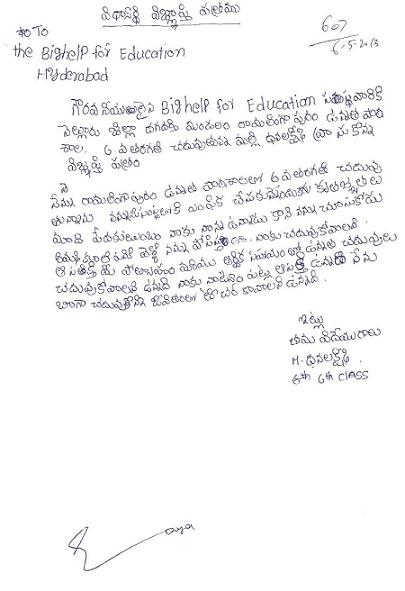 విద్యార్థి విజ్ఞాప్తి పత్రము
607
6-5-2013
To To
the Bighelp for Education
Hyderabad
గౌరవనీయులైన Bighelp for Education సంస్థవారికి
నెల్లూరు జిల్లా దగదర్తి మండలం రామలింగాపురం ఉన్నత పాఠ
శాల. 6 వ తరగతి చదువుతున్న మల్లి ధనలక్ష్మి వ్రాసుకొన్న
విజ్ఞప్తి పత్రం
నేను రామలింగాపురం ఉన్నత పాఠశాలలో 6 వ తరగతి చదువు
తున్నాను కృతజ్ఞతలు
మాది పేదకుటుంబం నాకు నాన్న ఉన్నాడు కాని నన్ను చూసుకోడు
అమ్మ పనికి వెళ్ళి నన్ను పోషిస్తుంది. నాకు చదువుకోవాలనే
మీ ప్రోత్సాహం మరియు ఆర్థిక సహాయం తో ఉన్నత చదువులు
చదువుకోవాలని ఉన్నది నాకు చదువు పట్ల ఆసక్తి ఉన్నది నేను
బాగా చదువుకొని జీవితంలో టీచర్ కావాలని ఉన్నది.
ఇట్లు
తమ విదేయురాలు
M. ధనలక్ష్మి
6th 6th class